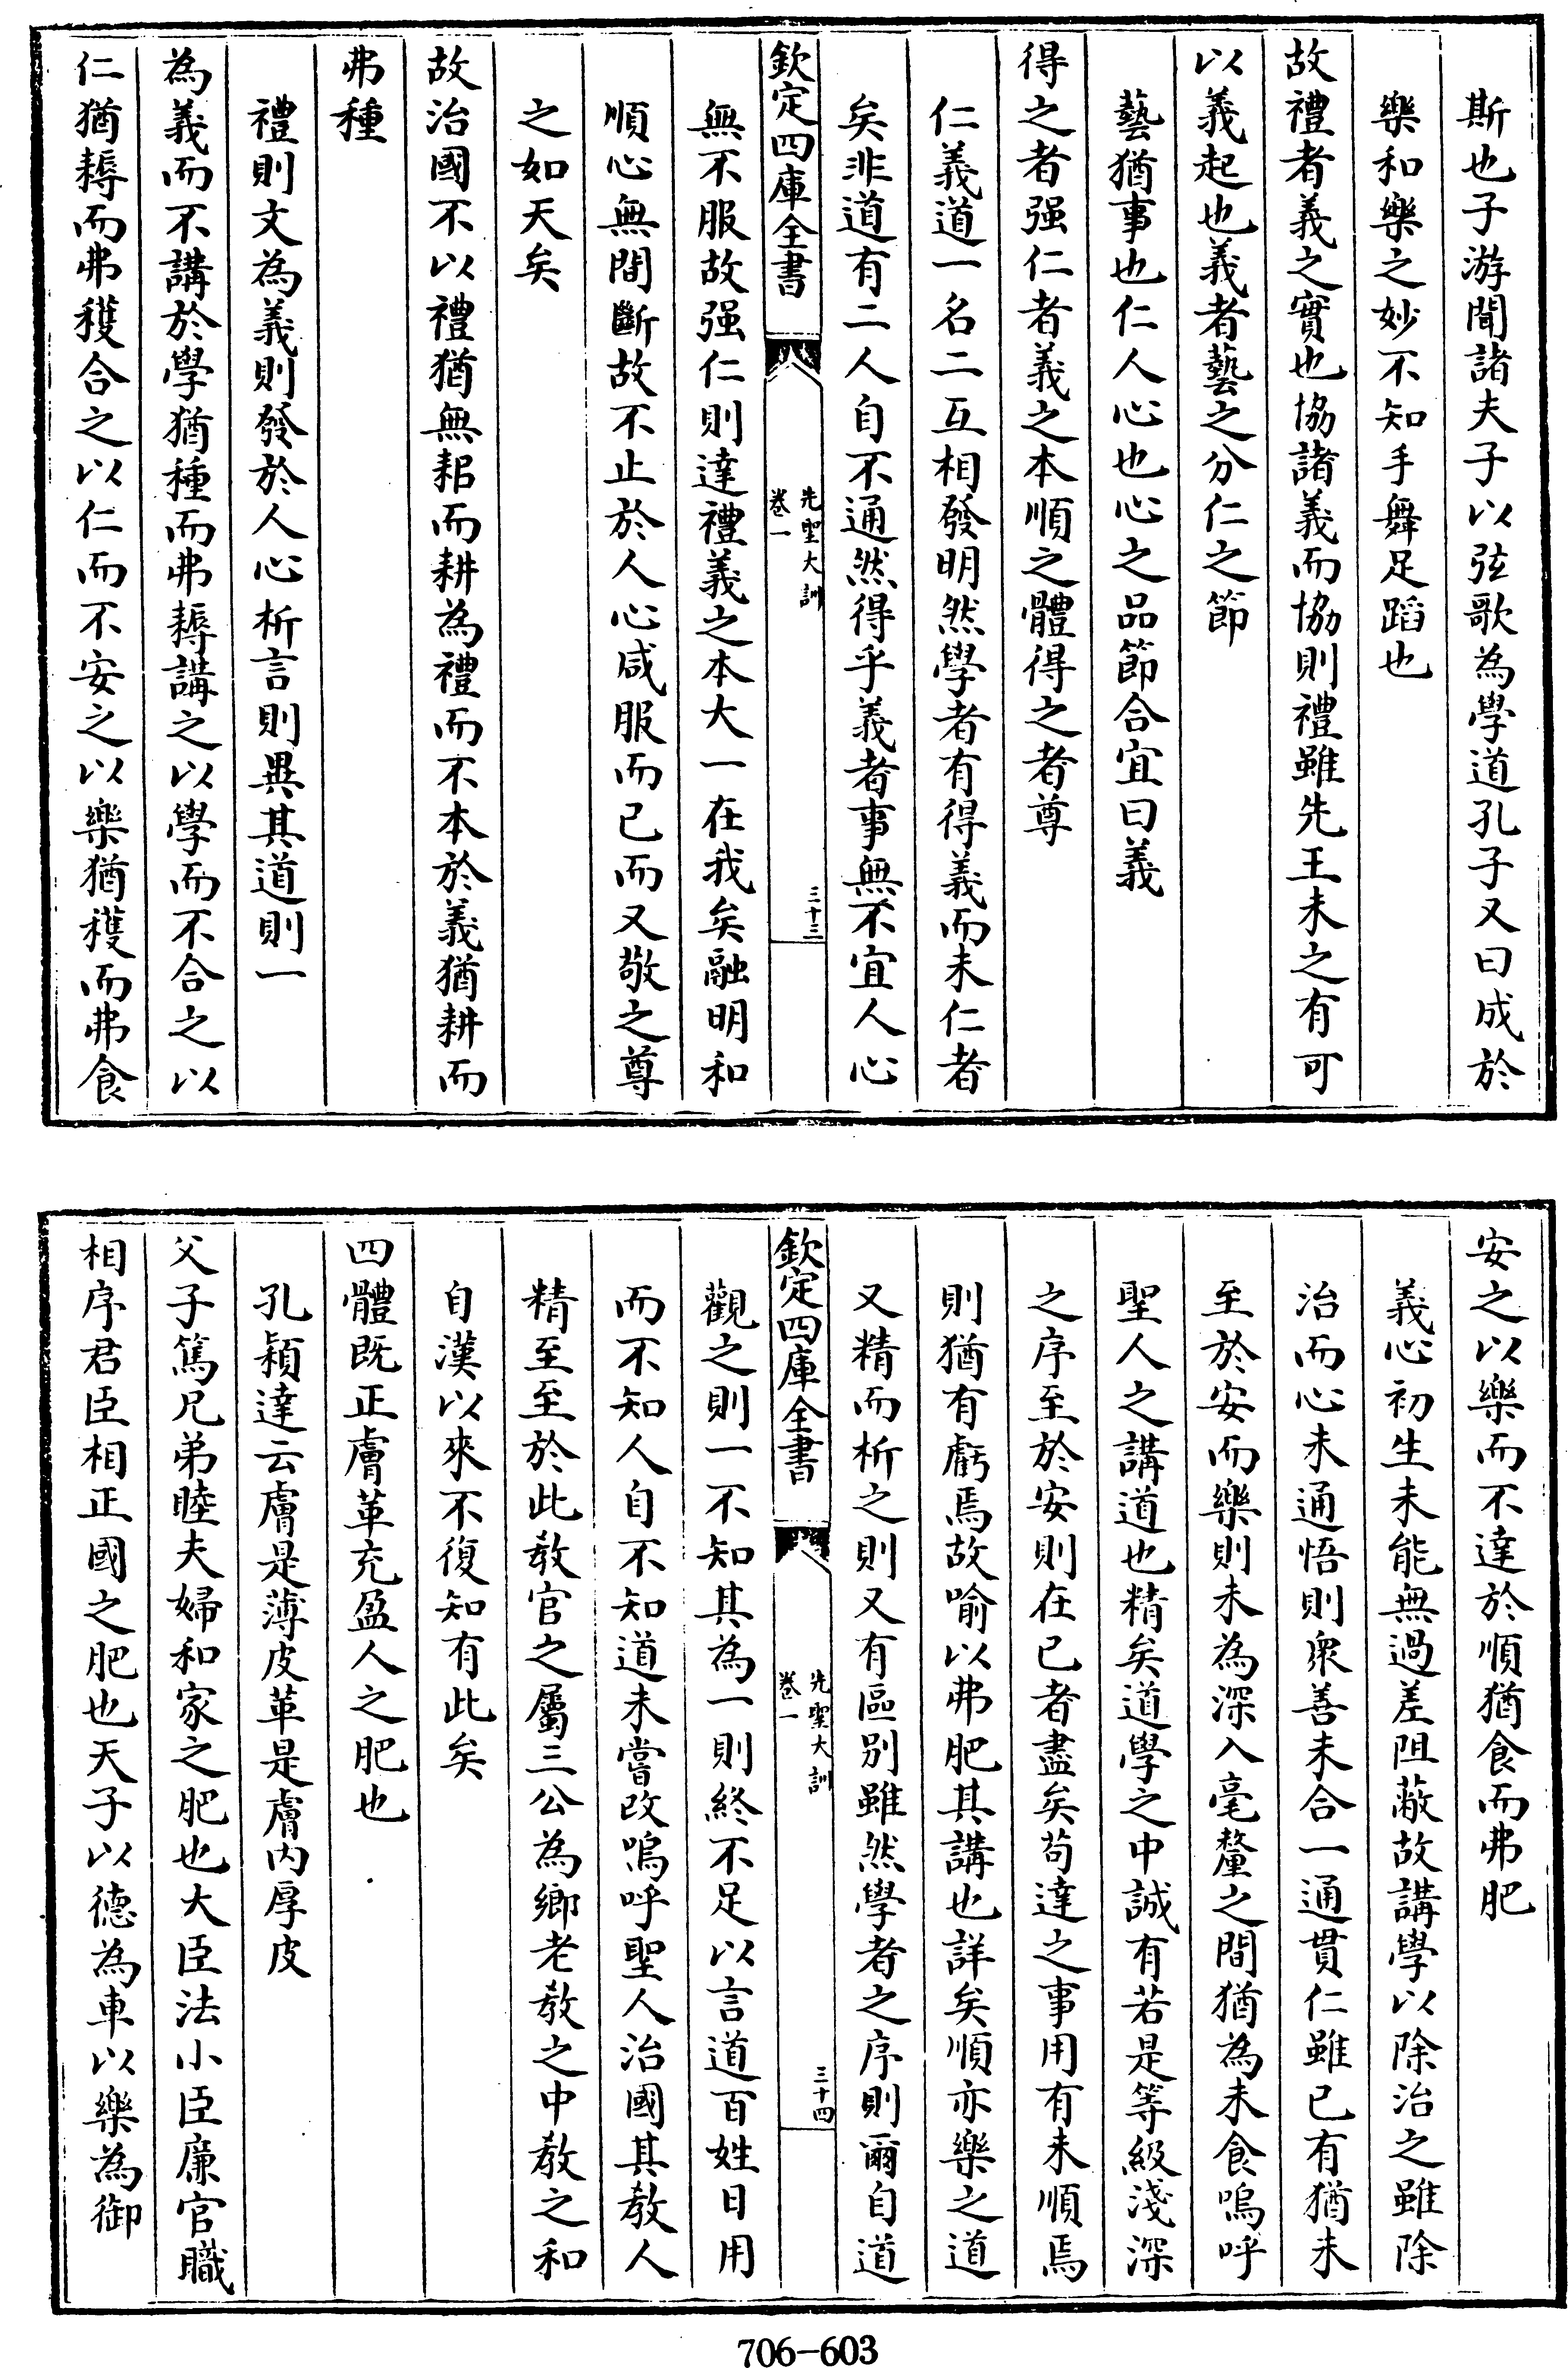 斯也子游聞諸夫子以弦歌為學道孔子又曰成於
樂和樂之妙不知手舞足蹈也
故禮者義之實也協諸義而協則禮雖先王未之有可
以義起也義者藝之分仁之節
藝猶事也仁人心也心之品節合宜曰義
得之者强仁者義之本順之體得之者尊
仁義道一名二互相發明然學者有得義而未仁者
矣非道有二人自不通然得乎義者事無不宜人心
欽定四庫全書
先聖大訓
卷一
三十三
無不服故强仁則達禮義之本大一在我矣融明和
順心無間斷故不止於人心咸服而已而又敬之尊
之如天矣
故治國不以禮猶無耜而耕為禮而不本於義猶耕而
弗種
禮則文為義則發於人心析言則異其道則一
為義而不講於學猶種而弗耨講之以學而不合之以
仁猶耨而弗穫合之以仁而不安之以樂猶穫而弗食
安之以樂而不達於順猶食而弗肥
義心初生未能無過差阻蔽故講學以除治之雖除
治而心未通悟則衆善未合一通貫仁雖已有猶未
至於安而樂則未為深入毫釐之間猶為未食嗚呼
聖人之講道也精矣道學之中誠有若是等級淺深
之序至於安則在已者盡矣苟達之事用有未順焉
則猶有虧焉故喻以弗肥其講也詳矣順亦樂之道
又精而析之則又有區别雖然學者之序則爾自道
欽定四庫全書
先聖大訓
卷一
三十四
觀之則一不知其為一則終不足以言道百姓日用
而不知人自不知道未嘗改嗚呼聖人治國其教人
精至至於此教官之屬三公為鄉老教之中教之和
自漢以來不復知有此矣
四體既正膚革充盈人之肥也
孔穎達云膚是薄皮革是膚内厚皮
父子篤兄弟睦夫婦和家之肥也大臣法小臣廉官職
相序君臣相正國之肥也天子以德為車以樂為御
706-603